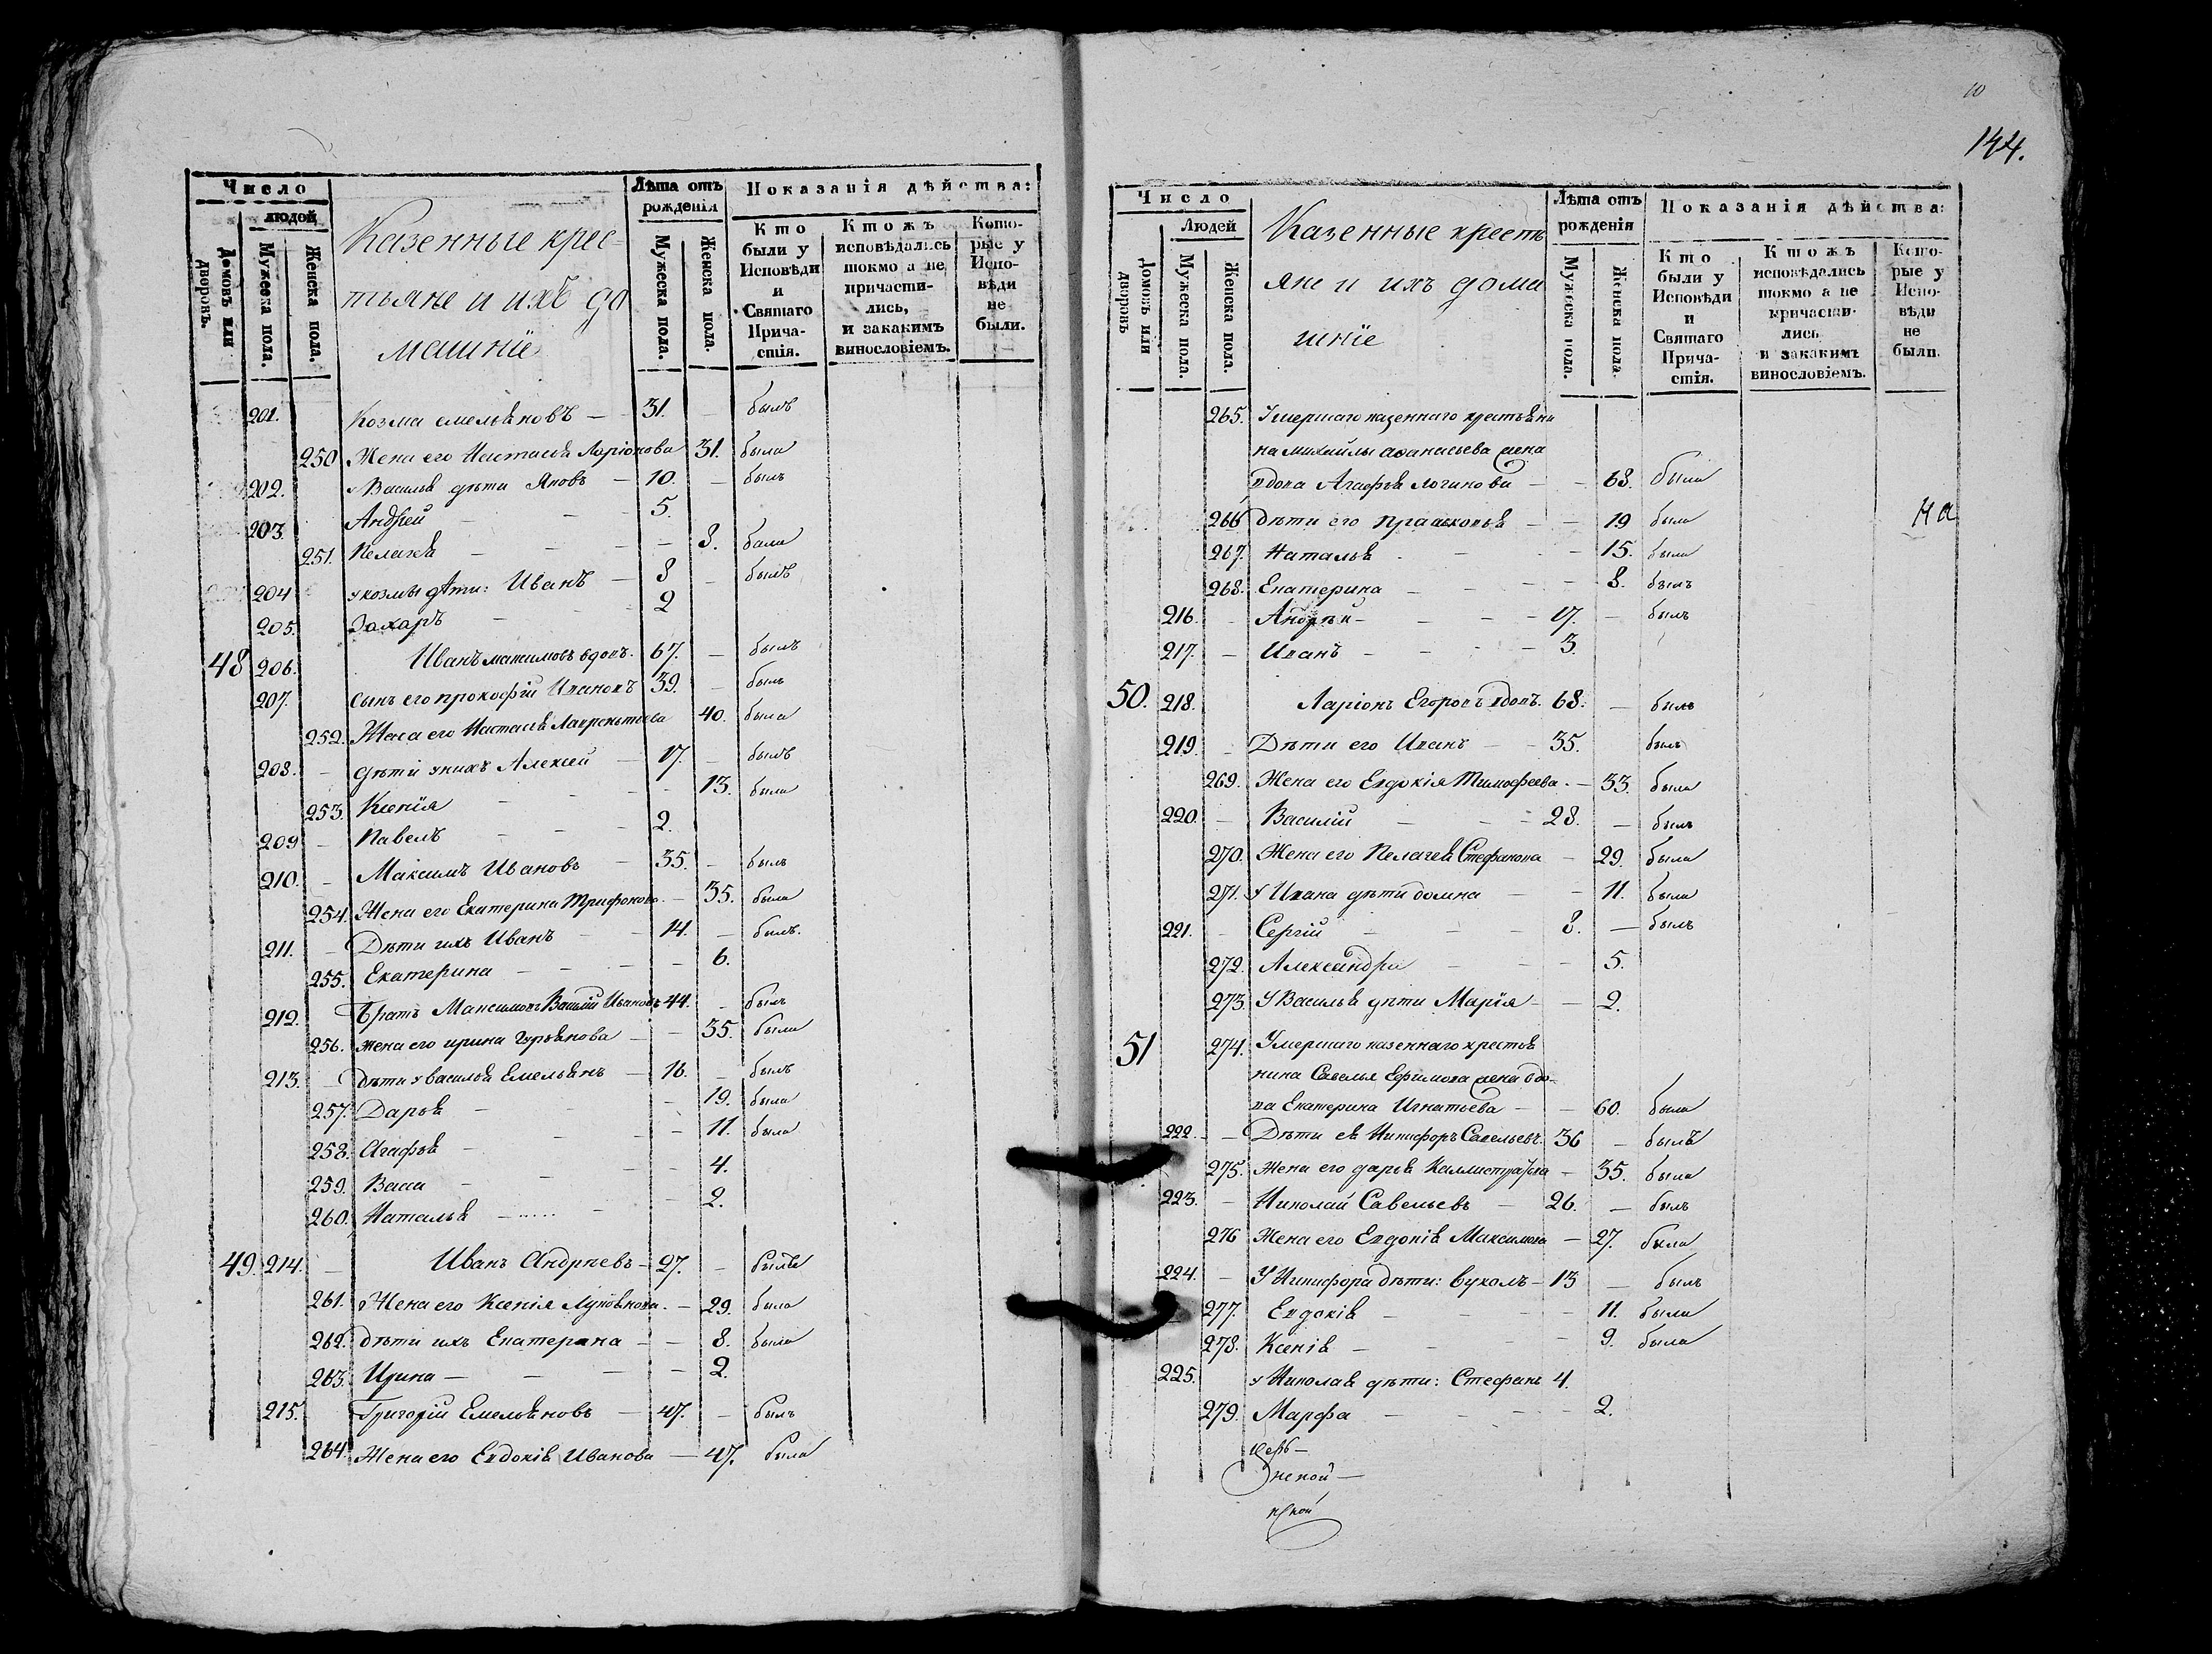 Число
людей
Домовъ или дворовъ.
Мужеска пола.
Женска пола.
Казенные крес-
тьяне и ихъ до
машніе
Лѣта отъ рожденія
Мужеска пола.
Женска пола.
Показанія дѣйства:
Кто были у Исповѣди и Святаго Прича-стія.
Ктожъ исповѣдались токмо а не причасти-лись, и закакимъ винословіемъ.
Кото-рые у Испо-вѣди не были.
201. Козма емельяновъ — 31. — былъ
250 Жена его Настасья Ларіонова 31. была
202. Василья дѣти Яковъ — 10. — былъ
203. Андрей — 5.
251. Пелагея — 8. была
204 у козмы дѣти: Иванъ — 8 — былъ
205. Захаръ — 2
48 206. Иванъ максимовъ вдовъ. 67. — былъ
207. сынъ его прокофій Ивановъ 39. — былъ
252. Жена его Настасья Лаврентьева 40. была
208. — дѣти у нихъ Алексей — 17. — былъ
253. Ксенія — 13. была
209 — Павелъ — 2.
210. — Максимъ Ивановъ — 35. — былъ
254. Жена его Екатерина Трифонова. — 35. была
211. — Дѣти ихъ Иванъ — 14. — былъ.
255. Екатерина — 6.
212. Братъ Максимовъ Василій Ивановъ 44. — былъ
256. жена его ирина Гурьянова — 35. была
213. — Дѣти у василья Емельянъ — 16. — былъ
257. Дарья — 19. была
258. Агафья — 11. была
259. Васса — 4.
260. Наталья — 2.
49. 214. — Иванъ Андреевъ — 27. — былъ
261. Жена его Ксенія Лукоянова. — 29. была
262. дѣти ихъ Екатерина — 8. была
263. Ирина — 2.
215. Григорій Емельяновъ — 47. — былъ
264. Жена его Евдокія Иванова — 47. была
10
144.
Число
Людей
Домовъ или дворовъ
Мужеска пола.
Женска пола.
Казенные кресть
яне и ихъ дома
шніе
Лѣта отъ рожденія
Мужеска пола.
Женска пола.
Показанія дѣйства:
Кто были у Исповѣди и Святаго Прича-стія.
Ктожъ исповѣдались токмо а не причасти-лись и закакимъ винословіемъ.
Кото-рые у Испо-вѣди не были.
265. Умершаго казеннаго крестьяни
на михайлы афанасьева жена
вдова Агафья логинова — 68. была
266 дѣти его прасковья — 19 была
на
267. Наталья — 15. была
268. Екатерина — 8. былъ
216. — Андрѣй — 17. — былъ
217. — Иванъ — 3.
50. 218. Ларіонъ Егоровъ вдовъ. 68. — былъ
219. Дѣти его Иванъ — 35. былъ
269. Жена его Евдокія Тимофеева. — 33. была
220. — Василій — 28. — былъ
270. Жена его Пелагея Стефанова — 29. была
271. у Ивана дѣти домна — 11. была
221. — Сергій — 8. — былъ
272. Александра — 5.
273. У Василья дѣти Марія — 2.
51 274. Умершаго казеннаго крестья
нина Савелья Ефимова жена вдо-
ва Екатерина Игнатьева — 60. была
222. — Дѣти ея Никифоръ Савельевъ. 36 — былъ
275. Жена его дарья Каллистратова — 35. была
223. — Николай Савельевъ — 26. — былъ
276 Жена его Евдокія Максимова — 27. была
224. — У Никифора дѣти: вуколъ — 13 — былъ
277. Евдокія — 11. была
278. Ксенія — 9. была
225. у Николая дѣти: Стефанъ 4.
279. Марфа — 2.